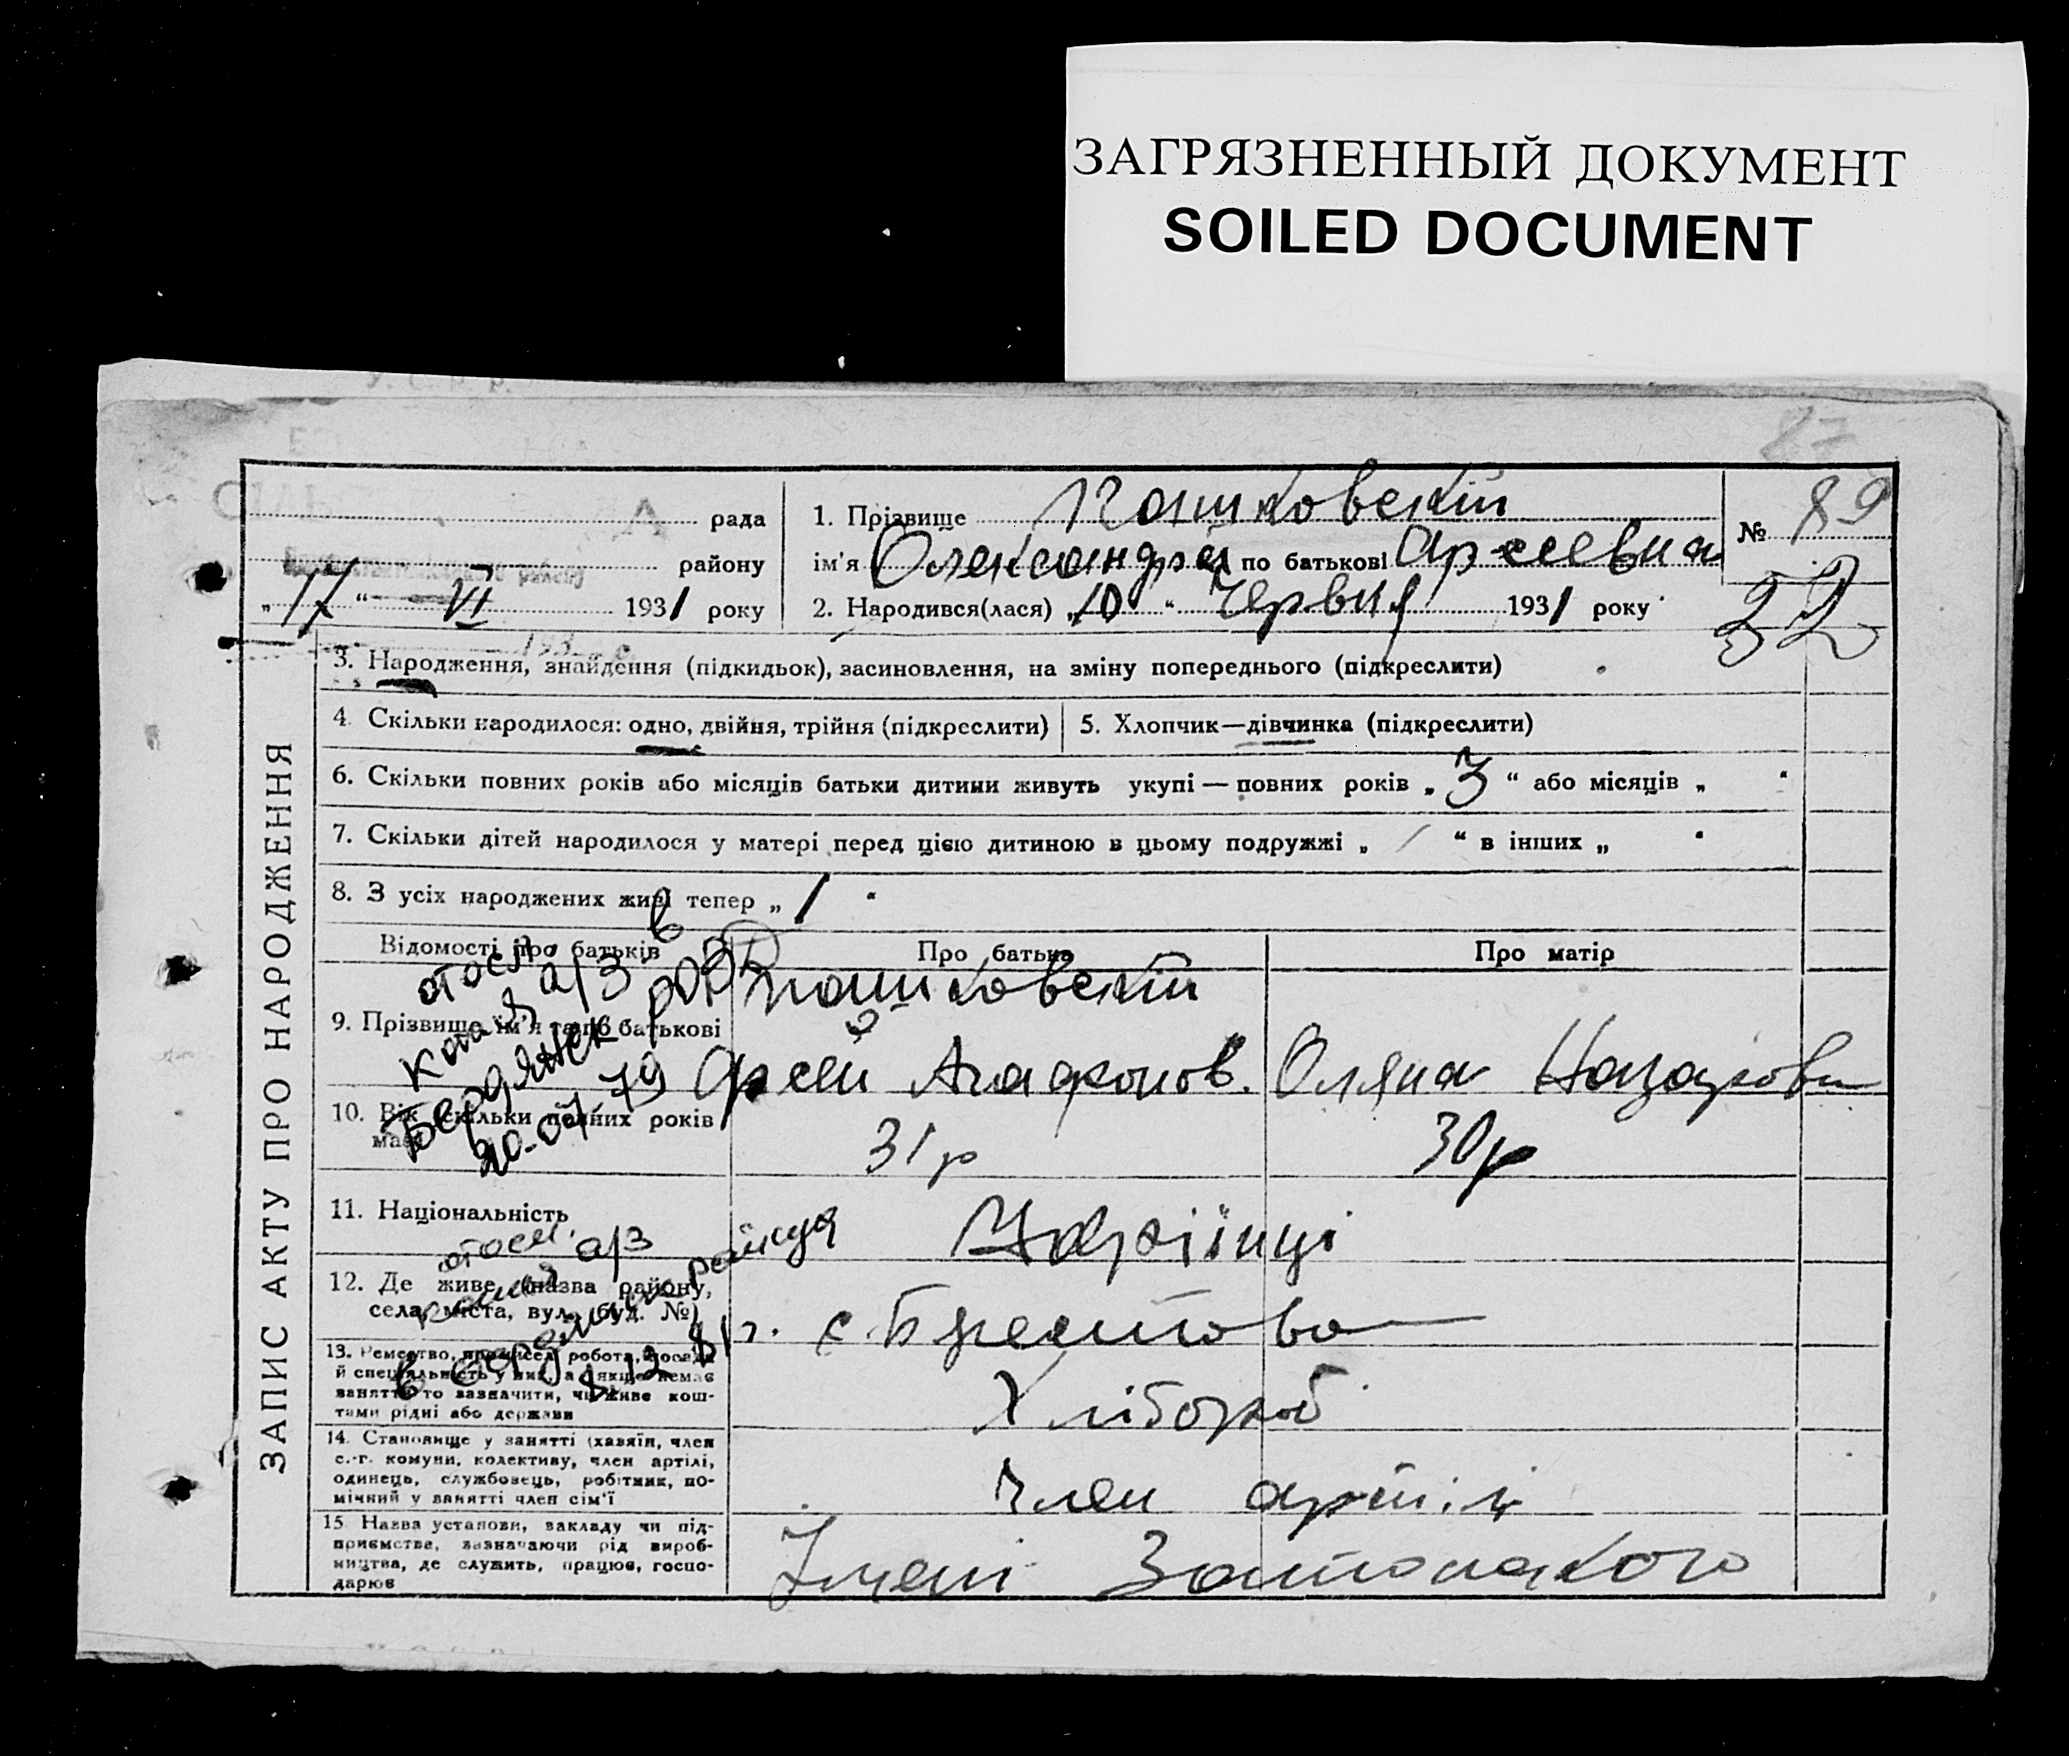 ЗАГРЯЗНЕННЫЙ ДОКУМЕНТ
SOILED DOCUMENT
87
рада
району
„17“ VI 1931 року
1. Прізвище Пашковскій
ім'я Олександра по батькові Арсеевна
2. Народився(лася) „10“ Червня 1931 року
№ 89
32
3. Народження, знайдення (підкидьок), засиновлення, на зміну попереднього (підкреслити)
4. Скільки народилося: одно, двійня, трійня (підкреслити)
5. Хлопчик—дівчинка (підкреслити)
6. Скільки повних років або місяців батьки дитини живуть укупі — повних років „3“ або місяців „ “
7. Скільки дітей народилося у матері перед цією дитиною в цьому подружжі „ / “ в інших „ “
8. З усіх народжених живі тепер „1“
ЗАПИС АКТУ ПРО НАРОДЖЕННЯ
Відомості про батьків
Про батька
Про матір
9. Прізвище, ім'я та по батькові
Пашковскій
Арсей Агафонов.
Оляна Назарова
10. Вік скільки повних років має
31р
30р
11. Національність
Українці
12. Де живе (назва району,
села, міста, вул., буд. №)
с. Брестова
13. Ремество, промисел, робота, посада
й спеціяльність у них, а якщо немає
заняття то зазначити, чи живе кош-
тами рідні або держави
Хлібороб
14. Становище у занятті (хазяїн, член
с.-г. комуни, колективу, член артілі,
одинець, службовець, робітник, по-
мічний у занятті член сім'ї
Член артілі
15 Назва установи, закладу чи під-
приємства, зазначаючи рід вироб-
ництва, де служить, працює, госпо-
дарює
Імені Затонского
отосл.
копия а/з в
Бердянск
20-07-79
отосл. а/з
в